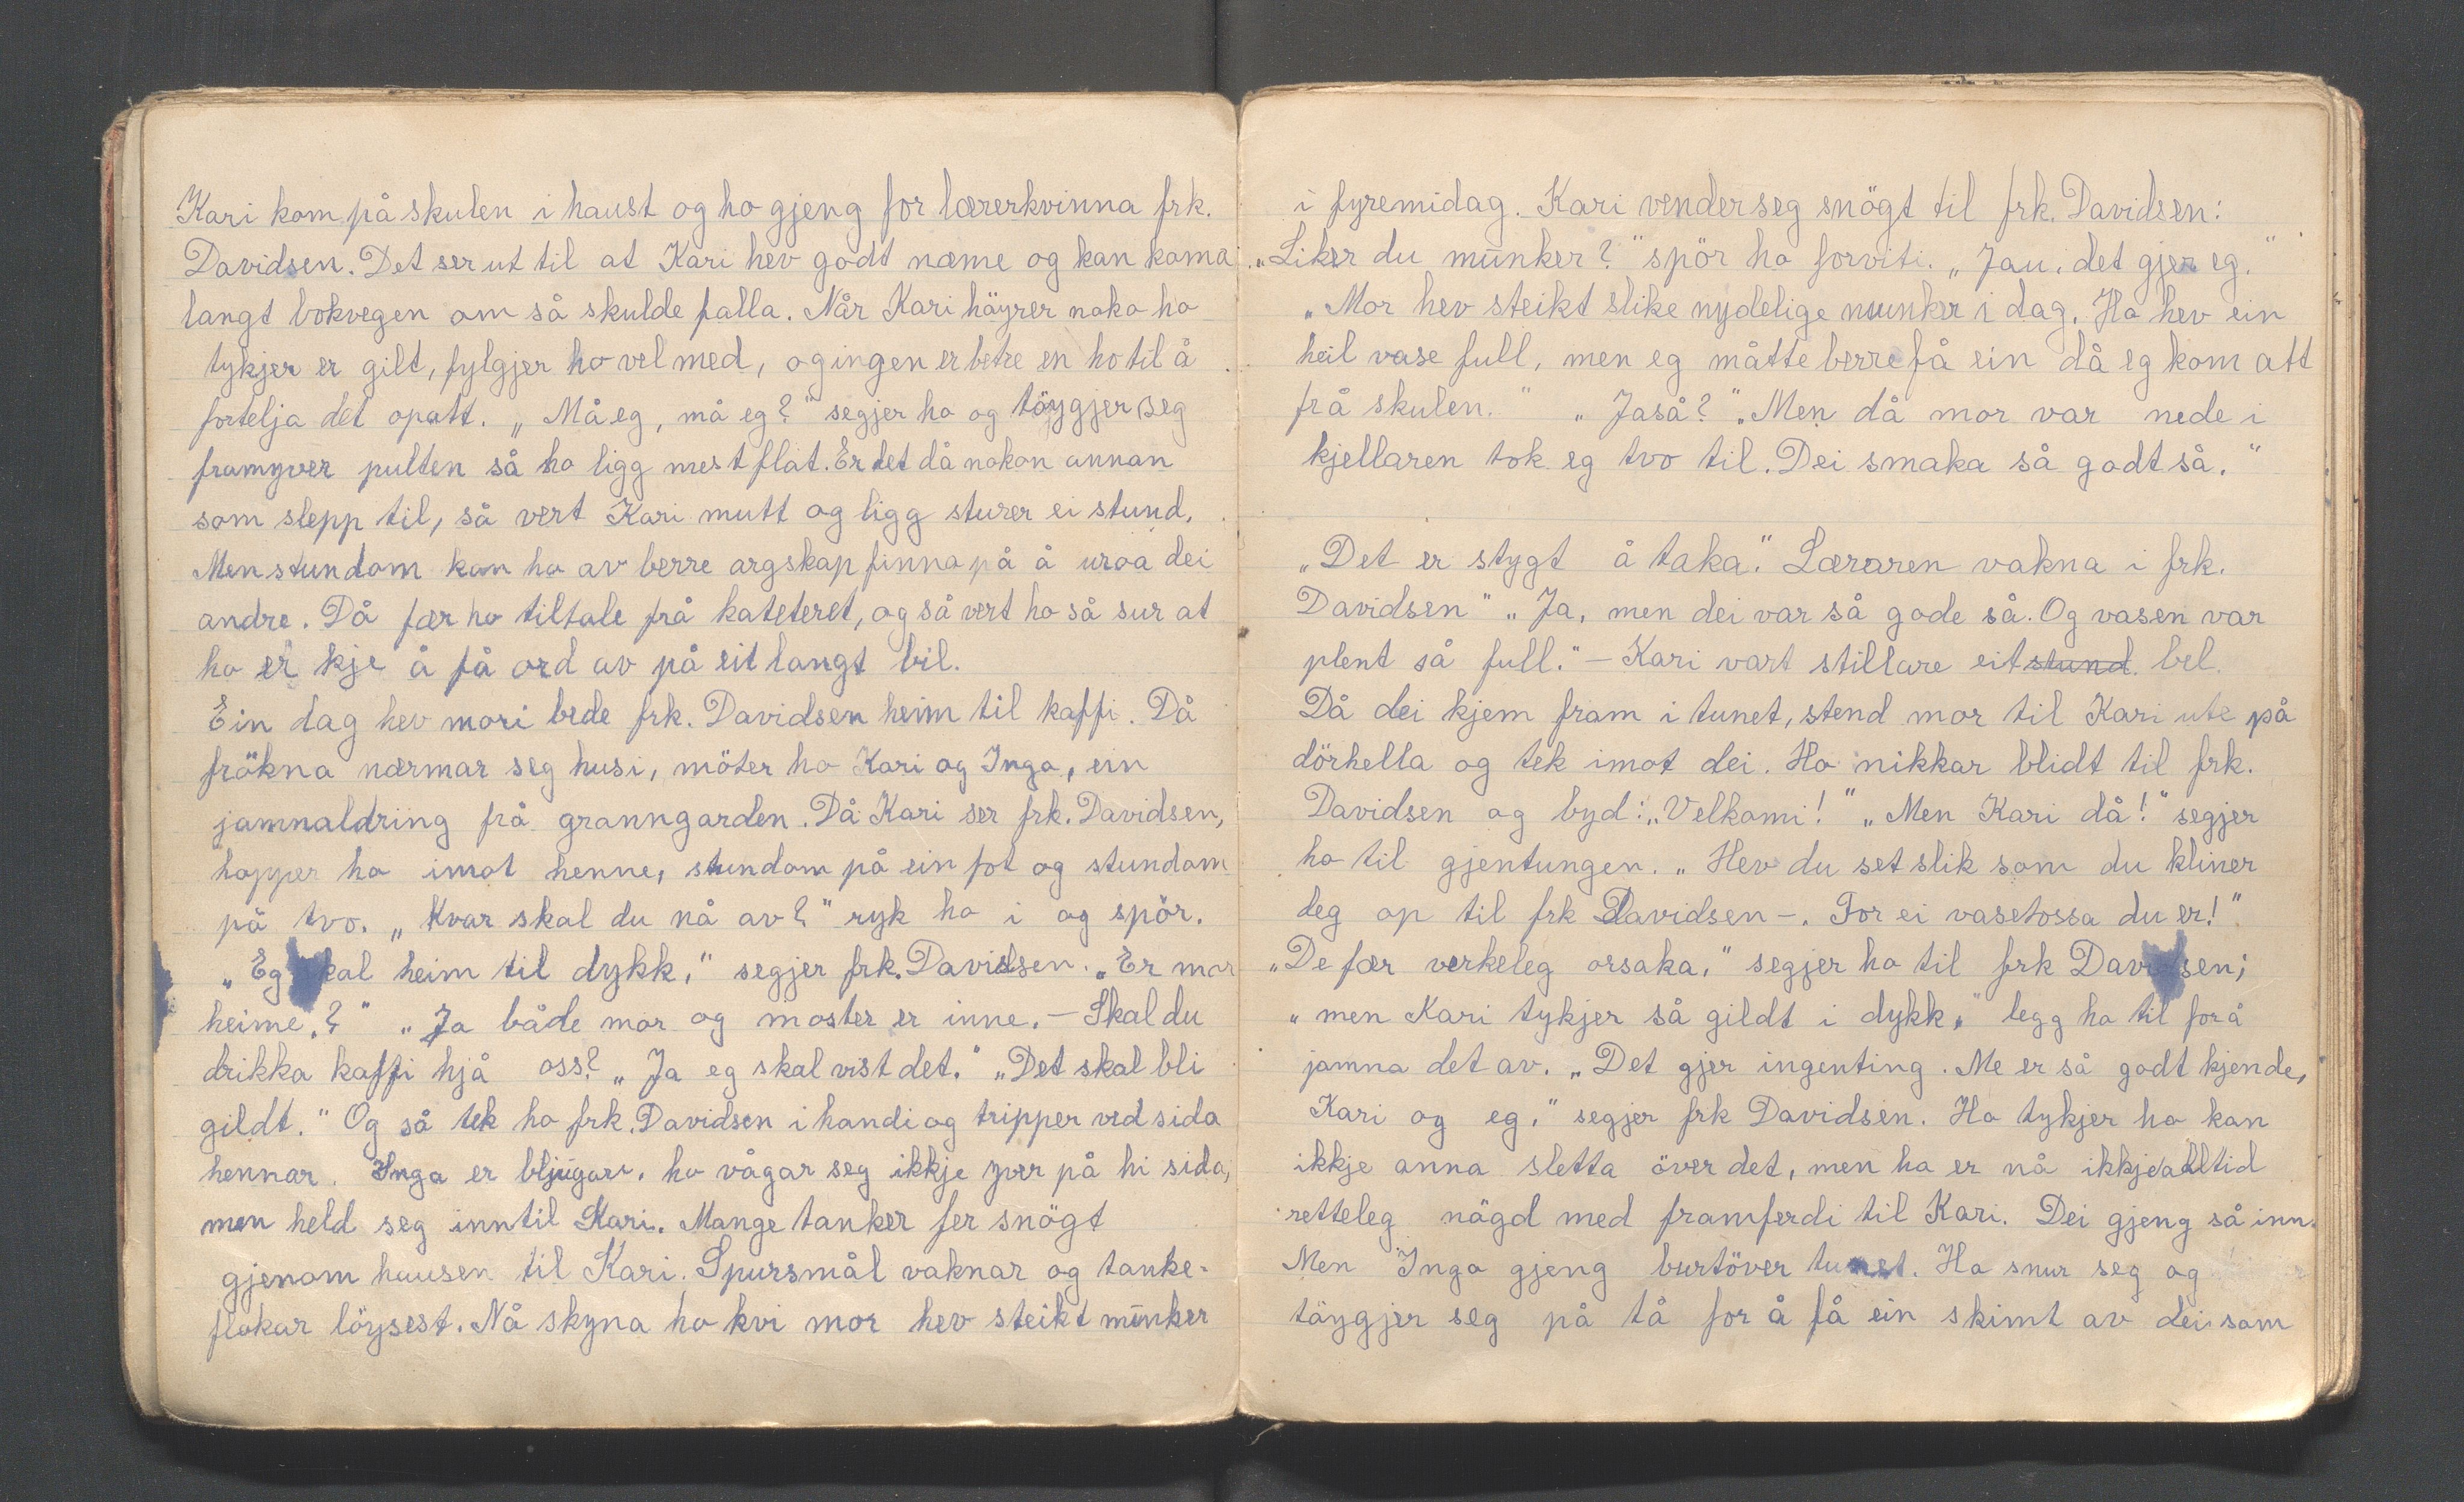 Kari kom på skulen i haust og ho gjeng for lærerkvinna frk.
Davidsen. Det ser ut til at Kari hev godt næme og kan koma
langt bokvegen om så skulde falla. Når Kari höyrer noko ho
tykjer er gilt, fylgjer ho vel med, og ingen er betre en ho til å
fortelja det opatt. „Må eg, må eg?" segjer ho og töygjer seg
framyver pulten så ho ligg mest flat. Er det då nokon annan
som slepp til, så vert Kari mutt og ligg sturer ei stund.
Men stundom kan ho av berre argskap finna på å uroa dei
andre. Då fær ho tiltale frå kateteret, og så vert ho så sur at
ho er kje å få ord av på eit langt bil.
Ein dag hev mori bede frk. Davidsen heim til kaffi. Då
frökna nærmar seg husi, möter ho Kari og Inga, ein
jamnaldring frå granngarden. Då Kari ser frk. Davidsen,
hopper ho imot henne, stundom på ein fot og stundom
på tvo. „Kvar skal du nå av?" ryk ho i og spör.
„Eg skal heim til dykk," segjer frk. Davidsen. „Er mor
heime.?" „Ja både mor og moster er inne. – Skal du
drikka kaffi hjå oss? „Ja eg skal vist det." „Det skal bli
gildt." Og så tek ho frk. Davidsen i handi og tripper ved sida
hennar. Inga er bljúgare, ho vågar seg ikkje yver på hi sida,
men held seg inntil Kari. Mange tanker fer snögt
gjenom hausen til Kari. Spursmål vaknar og tanke-
flokar löysest. Nå skyna ho kvi mor hev steikt munker
i fyremidag. Kari vender seg snögt til frk. Davidsen:
„Liker du munker?" spör ho forviti. „Jau, det gjer eg."
„Mor hev steikt slike nydelige munker i dag. Ho hev ein
heil vase full, men eg måtte berre få ein då eg kom att
frå skulen." „Jaså?" „Men då mor var nede i
kjellaren tok eg tvo til. Dei smaka så godt så."
„Det er stygt å taka." Læraren vakna i frk.
Davidsen" „Ja, men dei var så gode så. Og vasen var
plent så full." – Kari vart stillare eit stund bel.
Då dei kjem fram i tunet, stend mor til Kari ute på
dörhella og tek imot dei. Ho nikkar blidt til frk.
Davidsen og byd: „Velkomi!" „Men Kari då!" segjer
ho til gjentungen. „Hev du set slik som du kliner
deg op til frk Davidsen –. For ei vasetossa du er!"
„De fær verkeleg orsaka," segjer ho til frk Davidsen;
„men Kari tykjer så gildt i dykk," legg ho til for å
jamna det av. „Det gjer ingenting. Me er så godt kjende,
Kari og eg," segjer frk Davidsen. Ho tykjer ho kan
ikkje anna sletta över det, men ho er nå ikkje alltid
retteleg nögd med framferdi til Kari. Dei gjeng så inn.
Men Inga gjeng burtöver tunet. Ho snur seg og
töygjer seg på tå for å få ein skimt av dei som